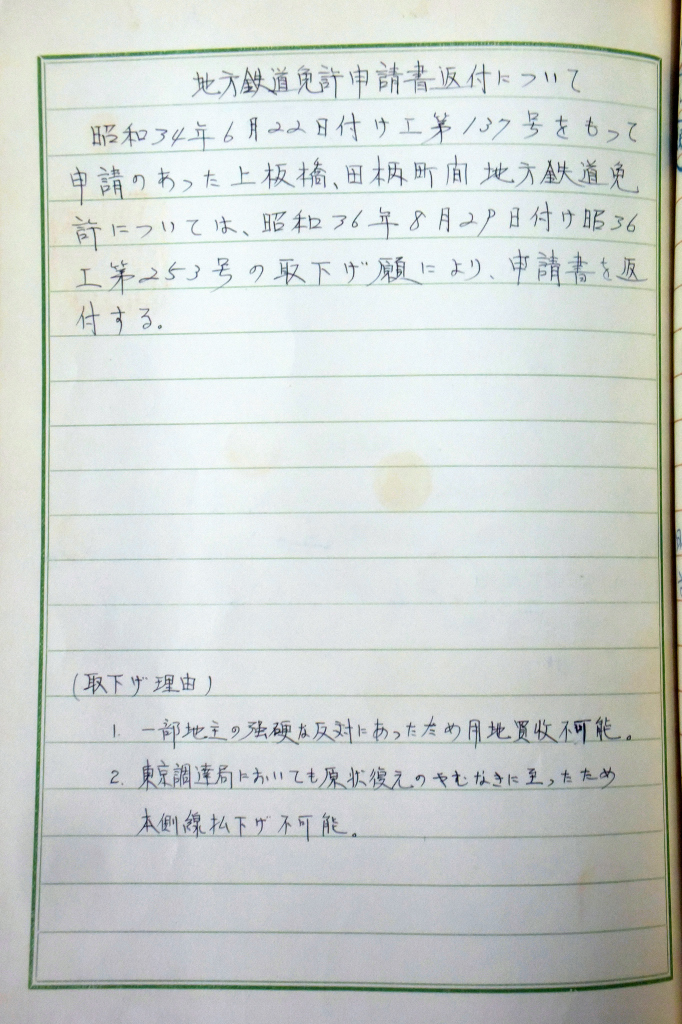 地方鉄道免許申請書返付について
昭和34年6月22日付け工第137号をもって
申請のあった上板橋、田柄町間地方鉄道免
許については、昭和36年8月29日付け昭36
工第253号の取下げ願により、申請書を返
付する。
(取下げ理由)
1. 一部地主の強硬な反対にあったため用地買収不可能。
2. 東京調達局においても原状復元のやむなきに至ったため
本側線払下げ不可能。